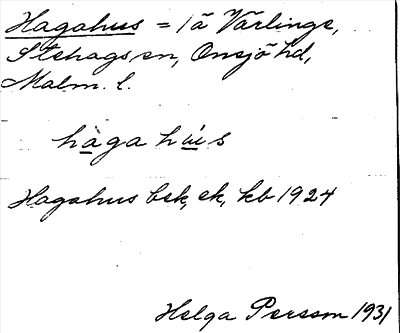 Hagahus = 1 å Värlinge,
Stehags sn, Onsjö hd,
Malm. l.
hàga hús
Hagahus bsk, ek, kb 1924
Helga Persson 1931